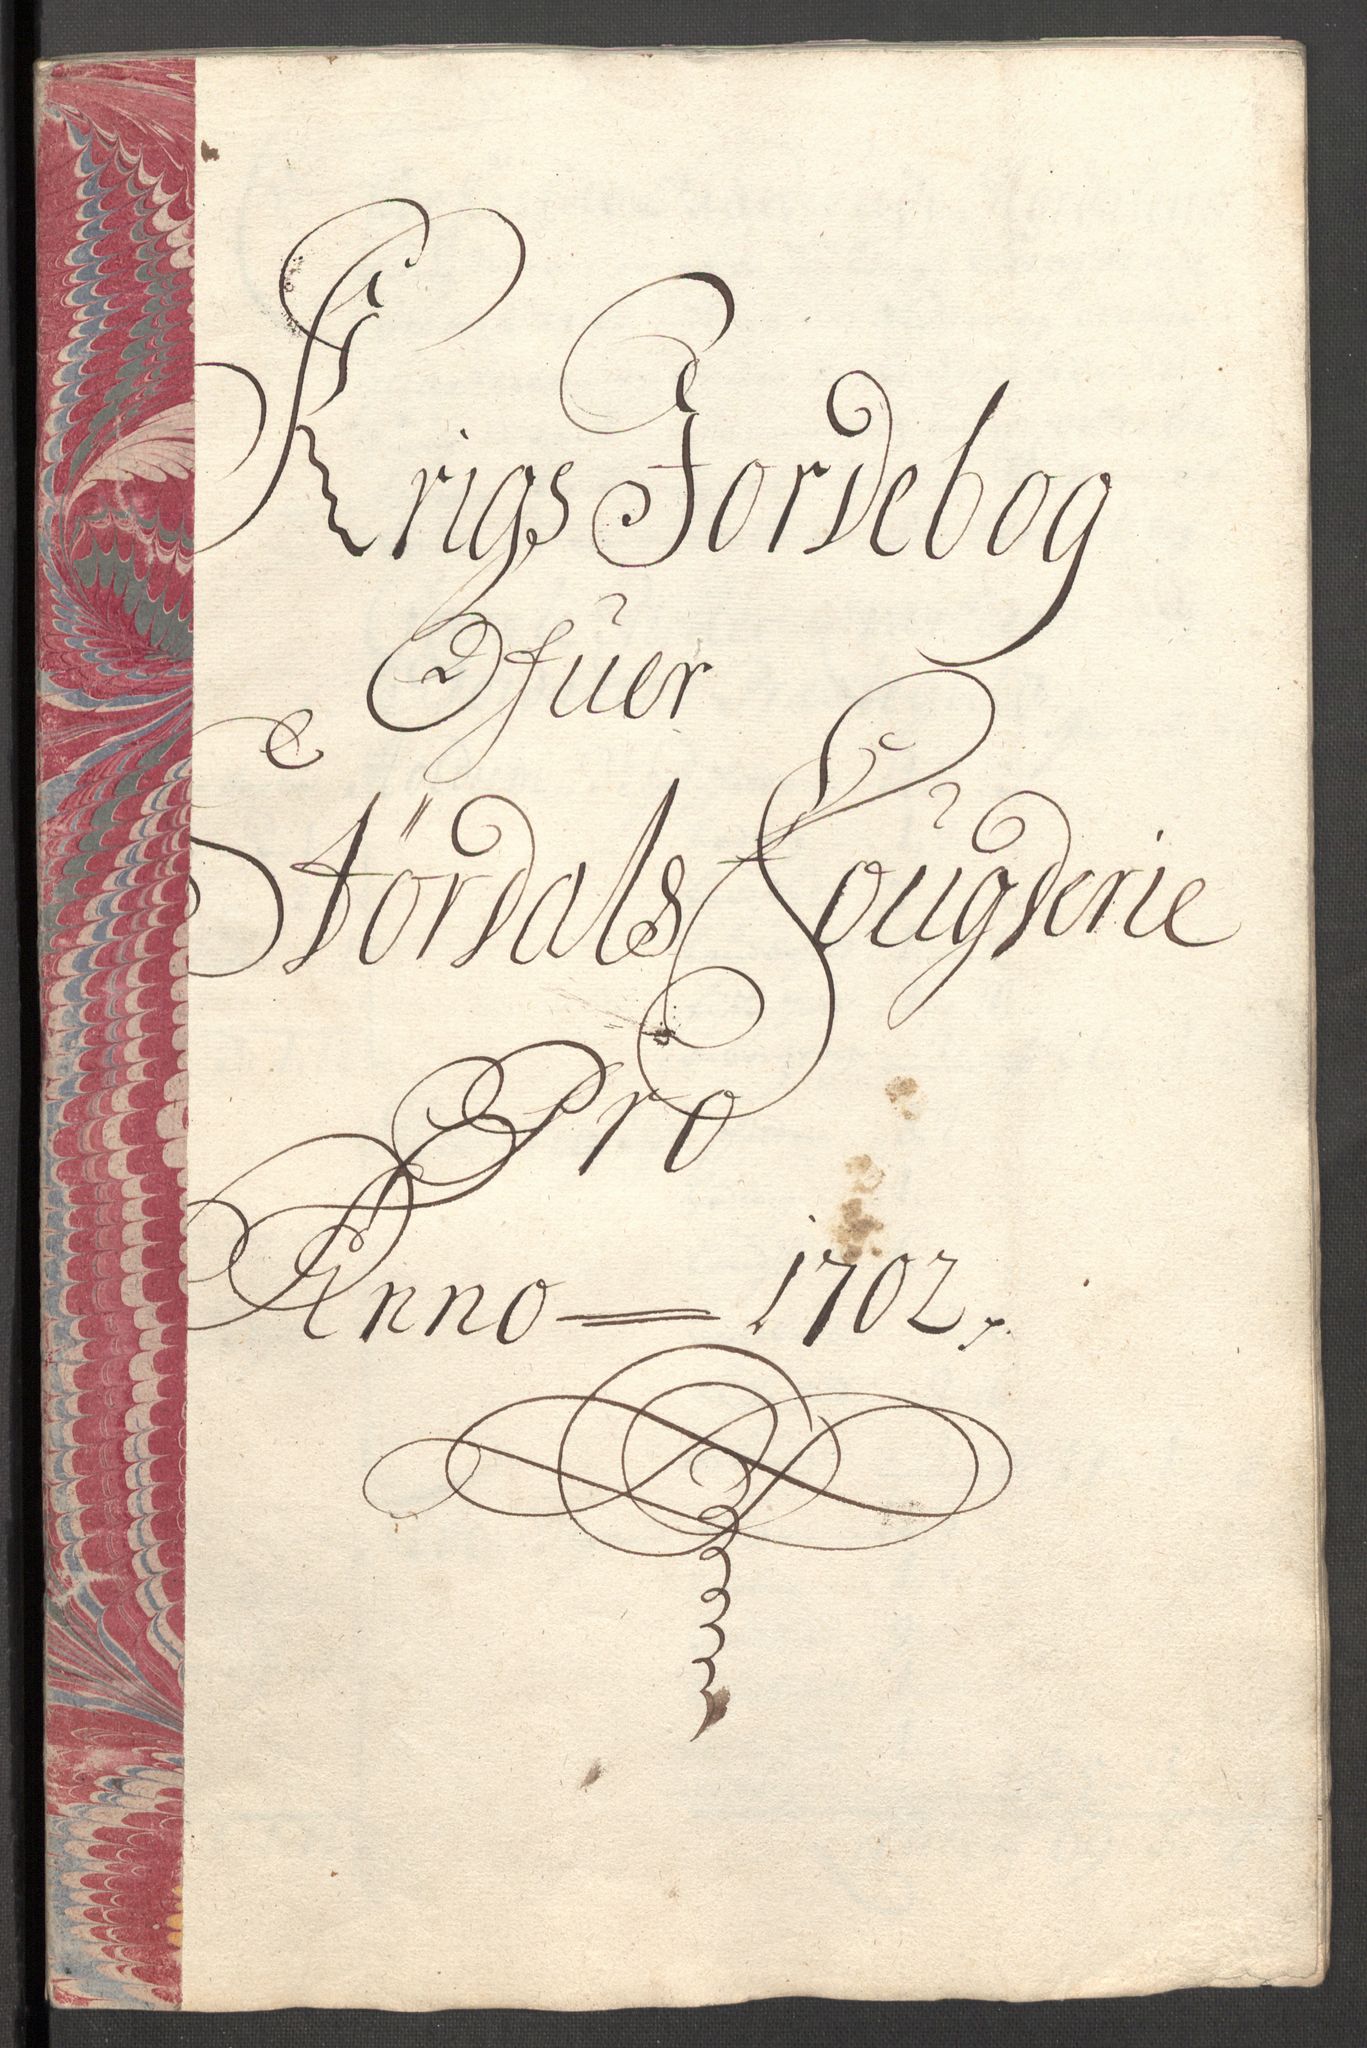 Krigs Jordebog
Ofuer
Stördals Fougderie
Pro
Anno 1702.